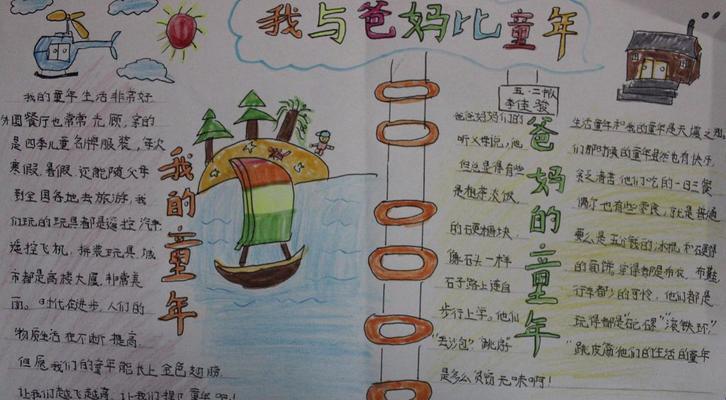 我与爸妈比童年
五.二中队
李佳骏
我的童年
我的童年生活非常好
外国餐厅也常常光顾,穿的
是四季儿童名牌服装,每次
寒假暑假还能随父母
到全国各地去旅游,我
们玩的玩具都是遥控汽车
遥控飞机,拼装玩具,城
市都是高楼大厦,非常美
丽。时代在进步,人们的
物质生活在不断提高,
但愿我们的童年能长上金色翅膀
让我们越飞越高
爸妈的童年
爸爸妈妈们的
听父母说,他
但总显得有些
是粗茶淡饭
的硬糖块,
像石头一样
石子路上连自
步行上学。他们
"丢沙包""跳房"
是多么贫穷无味啊!
生活童年和我的童年是天壤之别
们那时候的童年虽然也有快乐
他们吃的一日三餐
偶尔也有些零食,就是普通
要么是五分钱的冰棍和
行车都少的可怜,他们都是
玩得都是"滚铁环"
"跳皮筋他们的生活的童年